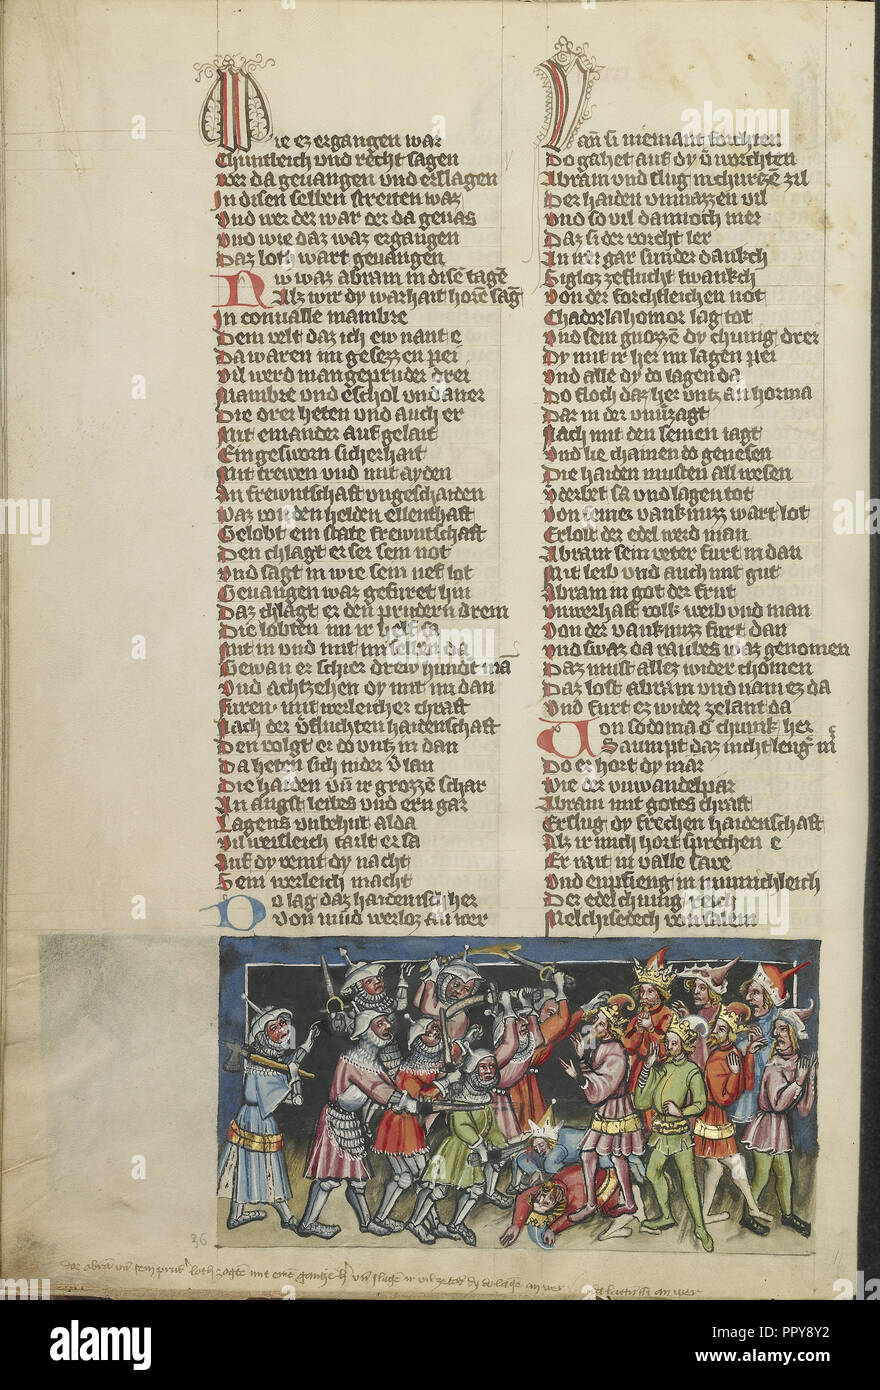 Wie ez ergangen war
Chuntleich vnd recht sagen
Wer da geuangen vnd erslagen
In disen selben streiten waz
Vnd wer der war der da genas
Vnd wie daz waz ergangen
Daz loth wart geuangen
Nw waz abram in dise tagē
Alz wir dy warhait horē saḡ
In conualle mambre
Dem velt daz ich ew nant e
Da waren im gesezzen pei
Vil werd man gepruder drei
Mambre vnd eschol vnd aner
Die drei heten vnd auch er
Mit einander auf gelait
Ein gesworn sicherhait
Mit trewen vnd mit ayden
An frewntschaft vngeschaiden
Waz von den helden ellenthaft
Gelobt ein state frewntschaft
Den chlagt er ser sein not
Vnd sagt in wie sein nef lot
Geuangen waz gefuret hin
Daz chlagt er den prudern drein
Die lobten im ir helf sa
Mit in vnd mit im selben da
Gewan er schier drew hundt mā
Vnd achtzehen dy mit im dan
Furen mit werleicher chraft
Nach der v̄fluchten haidenschaft
Den volgt er do vntz in dan
Da heten sich nider v̄lan
Die haiden vn̄ ir grozzē schar
An angst leibes vnd ern gar
Lagens vnbehut alda
Vil weisleich tailt er sa
Auf dy veint dy nacht
Sein werleich macht
Do lag daz haidenisch her
Von mud werloz an wer
Van si niemant forchten
Do gahet auf dy v̄worchten
Abram vnd slug in churczē zil
Der haiden vnmazzen vil
Vnd so vil dannoch mer
Daz si der vorcht ler
An wer gar sunder danckh
Sigloz ze flucht twankch
Von der forchtleichen not
Chadorlahomor lag tot
Vnd sein gnozzē dy chunig drei
Dy mit ir her im lagen pei
Vnd alle dy do lagen da
Do floch daz her vntz an horma
Dar in der vnu̇zagt
Nach mit den seinen iagt
Vnd lie chainen do genesen
Die haiden musten all wesen
Vnd lagen tot
Von seiner vanknuzz wart lot
Erlost der edel werd man
Abram sein veter furt in dan
Mit leib vnd auch mit gut
Abram in got der frut
Vnwerhaft volk weib vnd man
Von der vanknuzz furt dan
Vnd swaz da raubes waz genomen
Daz must allez wider chomen
Daz lost abram vnd nam ez da
Vnd furt ez wider ze lant da
Von sodoma d' chunk her
Saumpt daz nicht leng'
Do er hort dy mar
Wie der vnwandelpar
Abram mit gotes chraft
Erslug dy frechen haidenschaft
Alz ir mich hort sprechen e
Er rait in valle save
Vnd enpfieng in minnichleich
Der edel chunig reich
Melchisedech von salem
36
alamy
Image ID: PPY8Y2
www.alamy.com